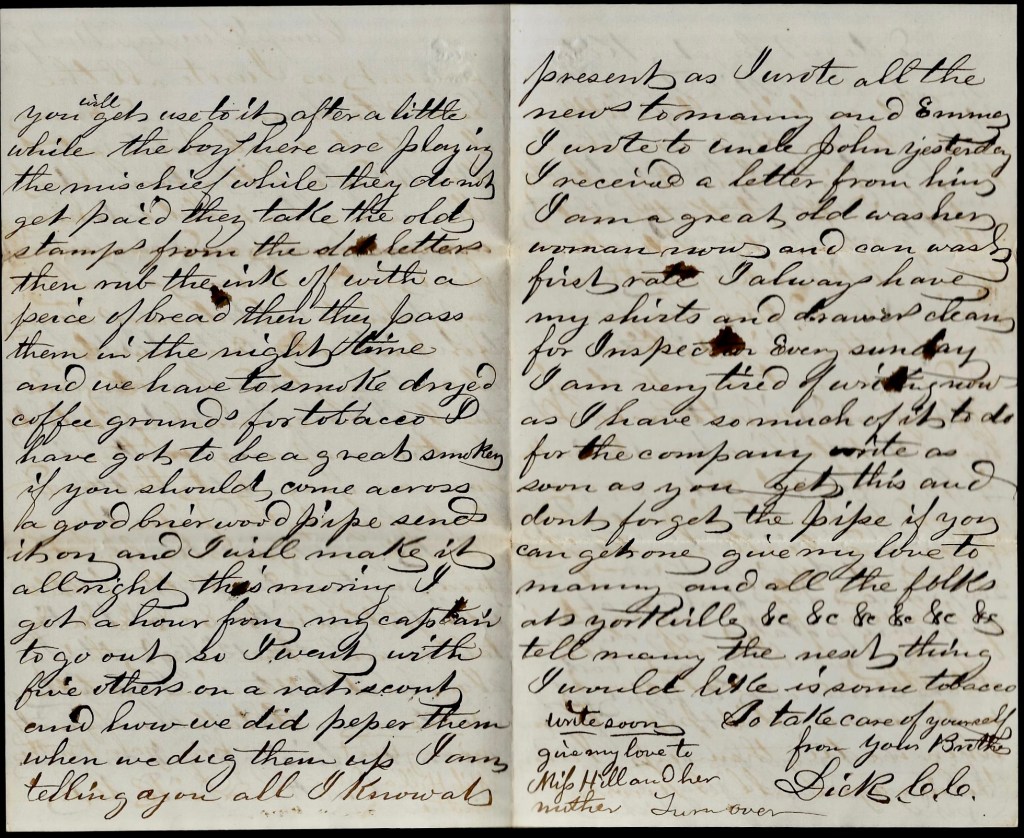 will
you get use to it after a little
while the boys here are playing
the mischief while they do not
get paid they take the old
stamps from the old letters
then rub the ink off with a
peice of bread then they pass
them in the night time
and we have to smoke dryed
coffee grounds for tobacco I
have got to be a great smoker
if you should come across
a good brier wood pipe send
it on and I will make it
all right this moring I
got a hour from my captain
to go out so I went with
five others on a rat scout
and how we did peper them
when we dug them up I am
telling you all I know at
present as I wrote all the
news to manny and Emma
I wrote to uncle John yesterday
I received a letter from him
I am a great old washer
woman now and can wash
first rate I always have
my shirts and drawers clean
for Inspection Every sunday
I am very tired of writing now
as I have so much of it to do
for the company write as
soon as you get this and
dont forget the pipe if you
can get one give my love to
manny and all the folks
at yorkville &c &c &c &c &c &c
tell manny the next thing
I would like is some tobacco
So take care of yourself
from your Brother
Dick C. C.
write soon
give my love to
Miss Hill and her
mother Turn over